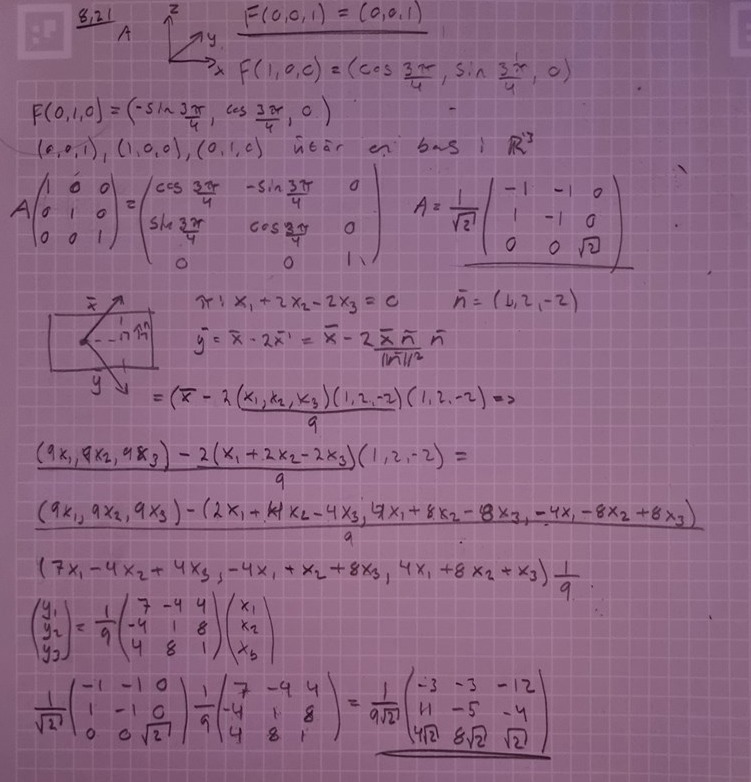 8,21 A z y x F(0,0,1) = (0,0,1)
F(1,0,0) = (cos 3π/4, sin 3π/4, 0)
F(0,1,0) = (-sin 3π/4, cos 3π/4, 0)
(0,0,1), (1,0,0), (0,1,0) är en bas i ℝ³
A (1 0 0; 0 1 0; 0 0 1) = (cos 3π/4 -sin 3π/4 0; sin 3π/4 cos 3π/4 0; 0 0 1) A = 1/√2 (-1 -1 0; 1 -1 0; 0 0 √2)
x̄ ȳ n̄ π: x₁ + 2x₂ - 2x₃ = 0 n̄ = (1, 2, -2)
ȳ = x̄ - 2x̄' = x̄ - 2 x̄ n̄ / ||n̄||² n̄
= (x̄ - 2(x₁, x₂, x₃)(1, 2, -2) / 9 (1, 2, -2) =>
(9x₁, 9x₂, 9x₃) - 2(x₁ + 2x₂ - 2x₃) / 9 (1, 2, -2) =
(9x₁, 9x₂, 9x₃) - (2x₁ + 4x₂ - 4x₃, 4x₁ + 8x₂ - 8x₃, -4x₁ - 8x₂ + 8x₃) / 9
(7x₁ - 4x₂ + 4x₃, -4x₁ + x₂ + 8x₃, 4x₁ + 8x₂ + x₃) 1/9
(y₁; y₂; y₃) = 1/9 (7 -4 4; -4 1 8; 4 8 1) (x₁; x₂; x₃)
1/√2 (-1 -1 0; 1 -1 0; 0 0 √2) 1/9 (7 -4 4; -4 1 8; 4 8 1) = 1/9√2 (-3 -3 -12; 11 -5 -4; 4√2 8√2 √2)